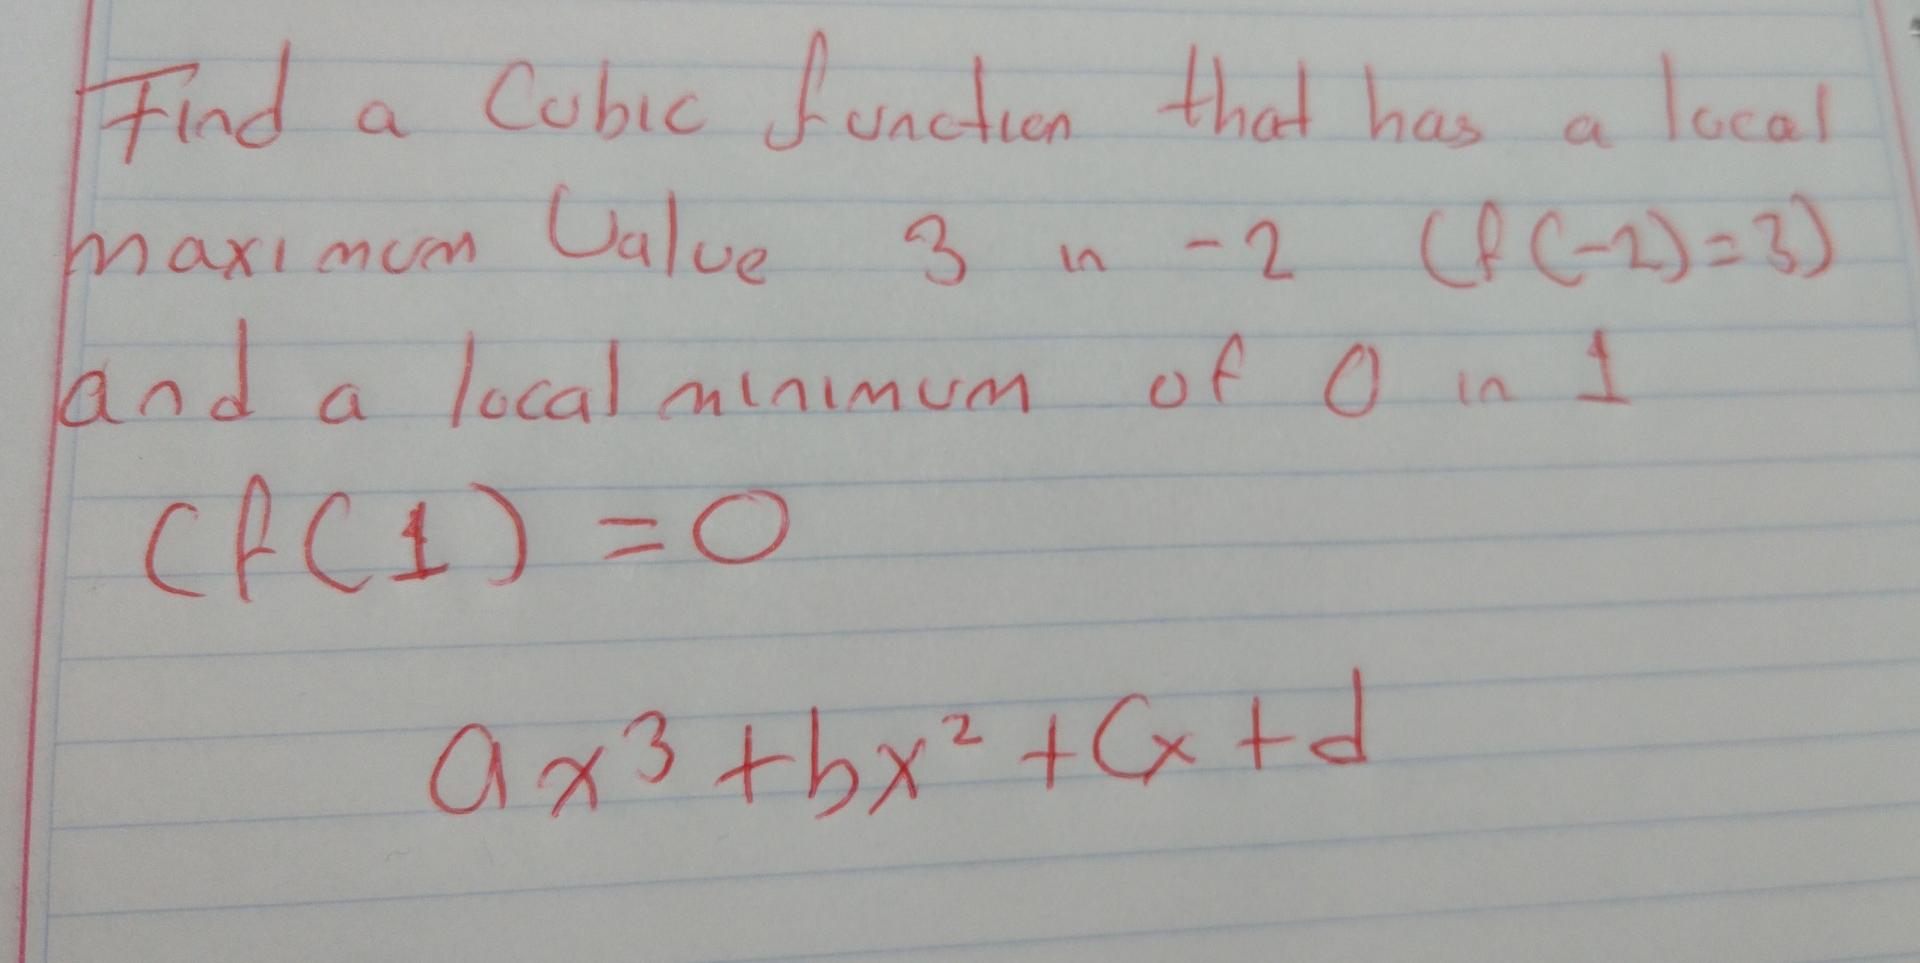 Find a Cubic function that has a local
maximum Value 3 in -2 (f(-2)=3)
and a local minimum of 0 in 1
(f(1)=0
ax³+bx²+Cx+d